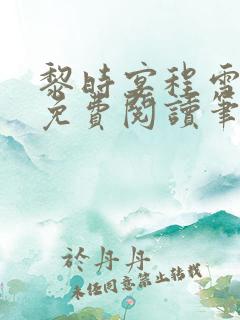 黎時宴程雪
免費閱讀筆
於丹丹
未經同意禁止轉載